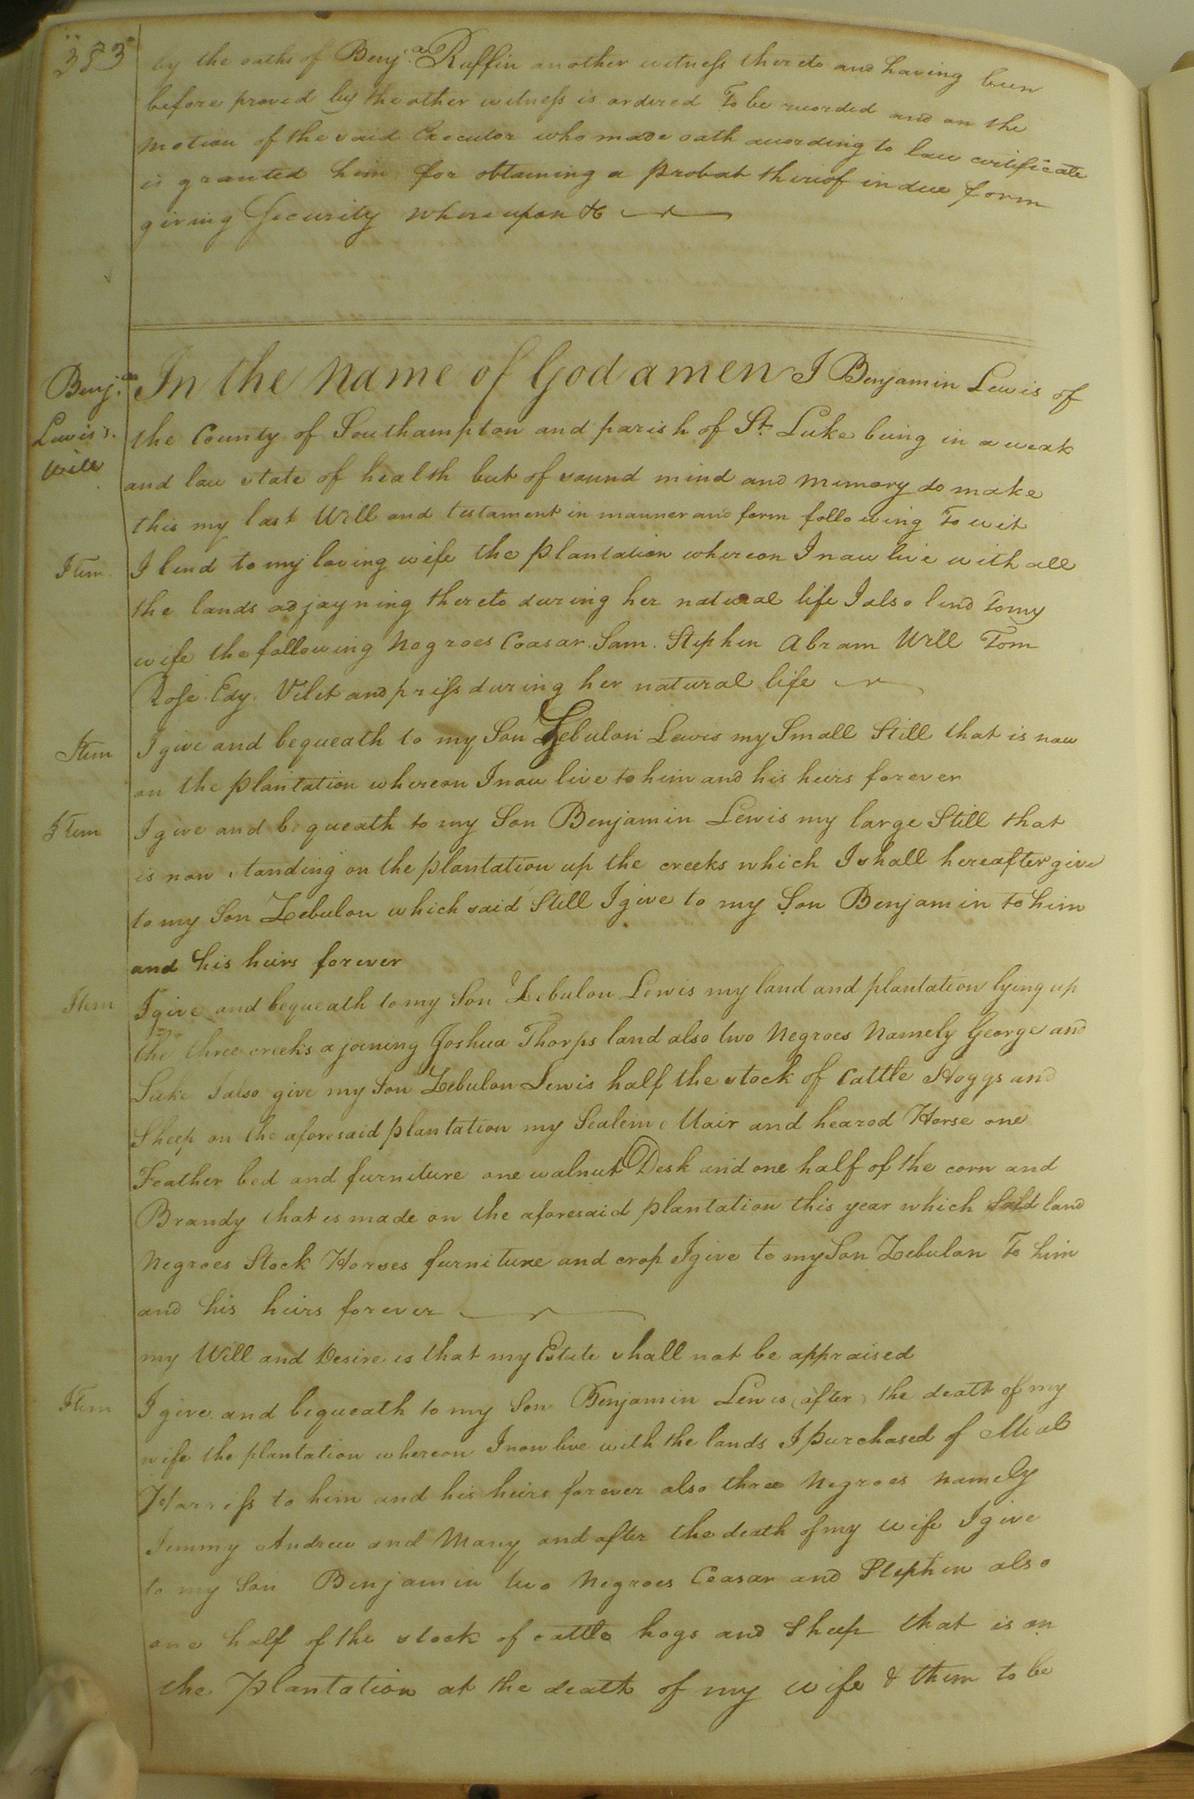 383
by the oaths of Benja Ruffin another witness thereto and having been
before proved by the other witness is ordered To be recorded and on the
motion of the said Executor who made oath according to law certificate
is granted him for obtaining a probat thereof in due form
giving Security whereupon &c
Benja
Lewis's
Will
In the Name of God amen I Benjamin Lewis of
the County of Southampton and parish of St. Luke being in a weak
and low state of health but of sound mind and memory do make
this my last Will and testament in manner and form following To wit
Item I lend to my loving wife the plantation whereon I now live with all
the lands adjoyning thereto during her natural life I also lend to my
wife the following Negroes Coasar Sam. Stephen Abram Will Tom
Rose Edy. Vilet and priss during her natural life
Item I give and bequeath to my Son Zebulon Lewis my Small Still that is now
on the plantation whereon I now live to him and his heirs forever
Item I give and bequeath to my Son Benjamin Lewis my large Still that
is now standing on the plantation up the creeks which I shall hereafter give
to my Son Zebulon which said Still I give to my Son Benjamin to him
and his heirs forever
Item I give and bequeath to my Son Zebulon Lewis my land and plantation lying up
the three creeks ajoining Joshua Thorps land also two Negroes Namely George and
Luke I also give my Son Zebulon Lewis half the stock of Cattle Hoggs and
Sheep on the aforesaid plantation my Mair and Horse one
Feather bed and furniture one walnut Desk and one half of the corn and
Brandy that is made on the aforesaid plantation this year which Said land
Negroes Stock Horses furniture and crop I give to my Son Zebulon To him
and his heirs forever
my Will and Desire is that my Estate shall not be appraised
Item I give and bequeath to my Son Benjamin Lewis (after) the death of my
wife the plantation whereon I now live with the lands I purchased of
Harriss to him and his heirs forever also three Negroes namely
Jimmy Andrew and Mary and after the death of my wife I give
to my Son Benjamin two Negroes Ceasar and Stephen also
one half of the stock of cattle hogs and Sheep that is on
the Plantation at the death of my wife & them to be